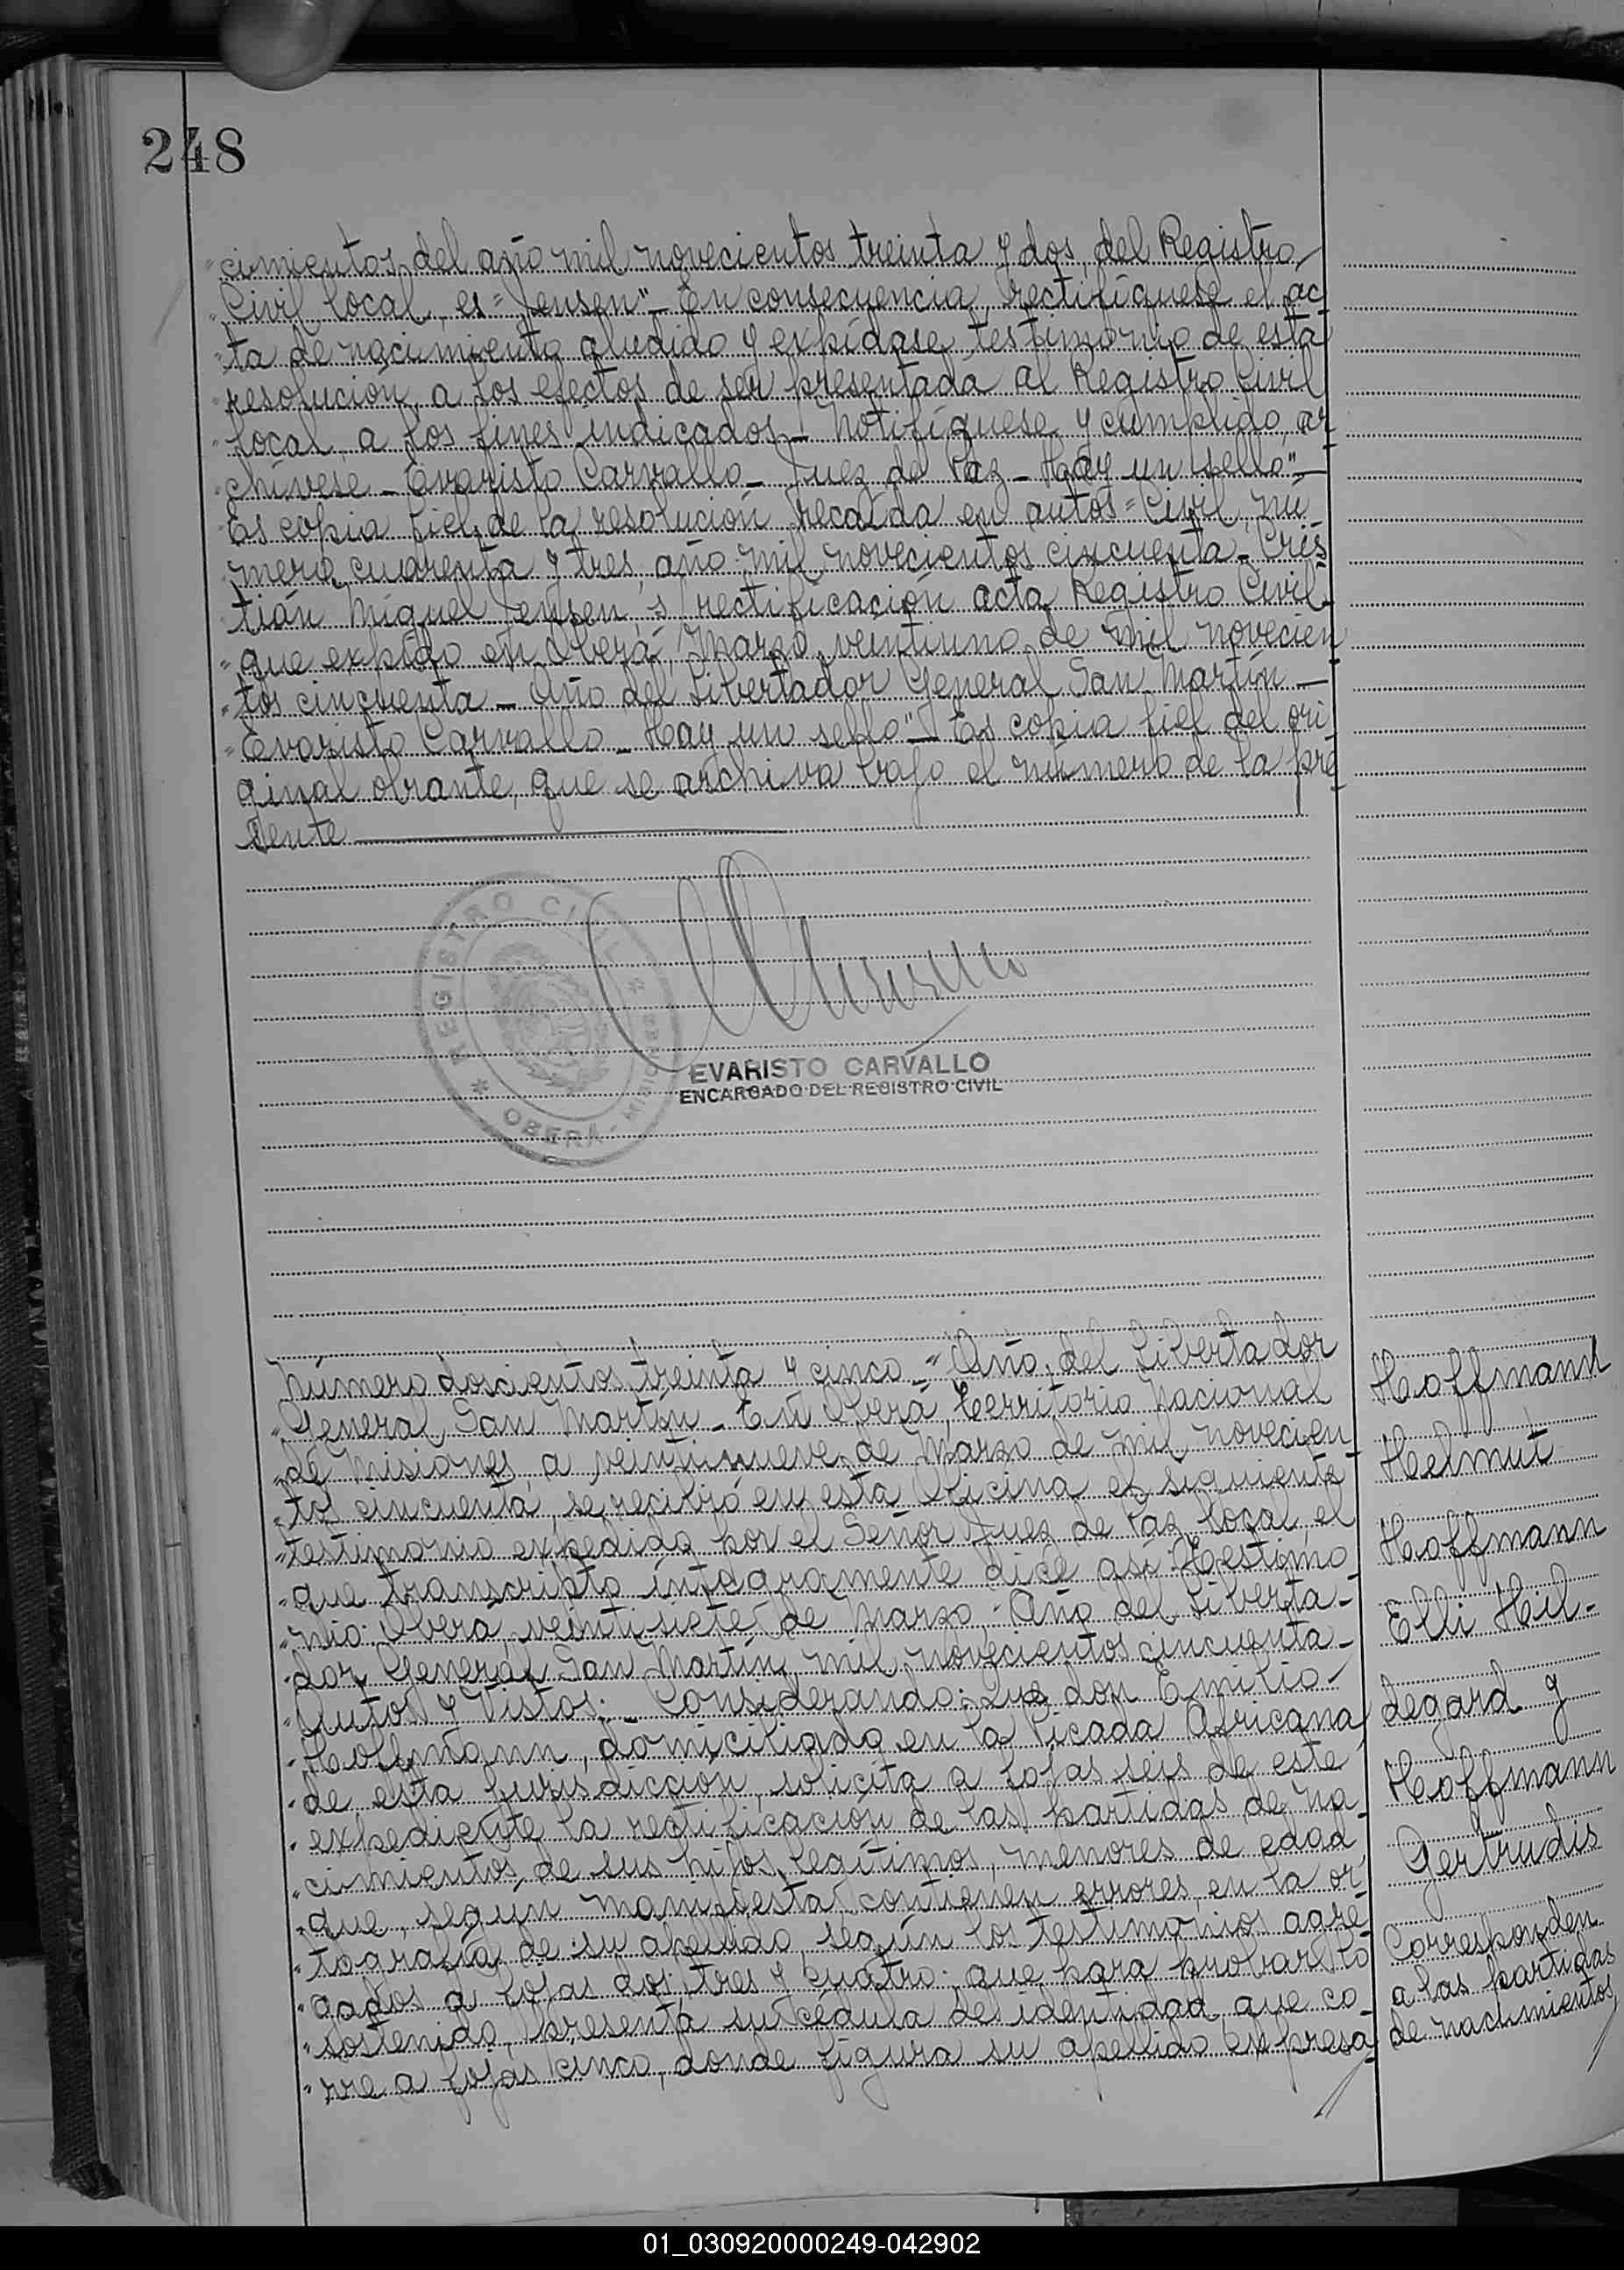 248
"cimientos del año mil novecientos treinta y dos, del Registro
"Civil local, es "Jensen"_ En consecuencia, rectifíquese el ac
"ta de nacimiento aludido y expídase testimonio de esta
"resolución, a los efectos de ser presentada al Registro Civil
"local, a los fines indicados_ Notifíquese y cumplido, ar
"chívese_ Evaristo Carvallo_ Juez de Paz_ Hay un sello"_
"Es copia fiel de la resolución recaída en autos "Civil nú
"mero cuarenta y tres, año mil novecientos cincuenta_ Cris
"tián Miguel Jensen, s/ rectificación acta Registro Civil_
"que expido en Oberá, Marzo veintiuno de mil novecien
"tos cincuenta_ Año del Libertador General San Martín_
"Evaristo Carvallo_ Hay un sello"_ Es copia fiel del ori
ginal obrante, que se archiva bajo el número de la pre
sente
REGISTRO CIVIL
OBERÁ - MISIONES
EVARISTO CARVALLO
ENCARGADO DEL REGISTRO CIVIL
Número doscientos treinta y cinco_ "Año del Libertador
"General San Martín_ En Oberá, Territorio Nacional
"de Misiones, a veintinueve de Marzo de mil novecien
"tos cincuenta, se recibió en esta Oficina el siguiente
"testimonio expedido por el Señor Juez de Paz local, el
"que transcripto íntegramente dice así: Testimo
"nio: Oberá, veintisiete de Marzo - Año del Liberta-
"dor General San Martín, mil novecientos cincuenta_
"Autos y Vistos:_ Considerando: Que don Emilio-
"Hoffmann, domiciliado en la Picada Africana
"de esta jurisdicción, solicita a fojas seis de este
"expediente la rectificación de las partidas de na_
"cimientos de sus hijos legítimos, menores de edad
"que, según manifiesta contienen errores en la or
"tografía de su apellido, según los testimonios agre
"gados a fojas dos, tres y cuatro: que para probar lo
"sostenido, presenta su cédula de identidad que co_
"rre a fojas cinco, donde figura su apellido expresa
Hoffmann
Helmut
Hoffmann
Elli Hil-
degard y
Hoffmann
Gertrudis
Corresponden
a las partidas
de nacimientos,
01_030920000249-042902